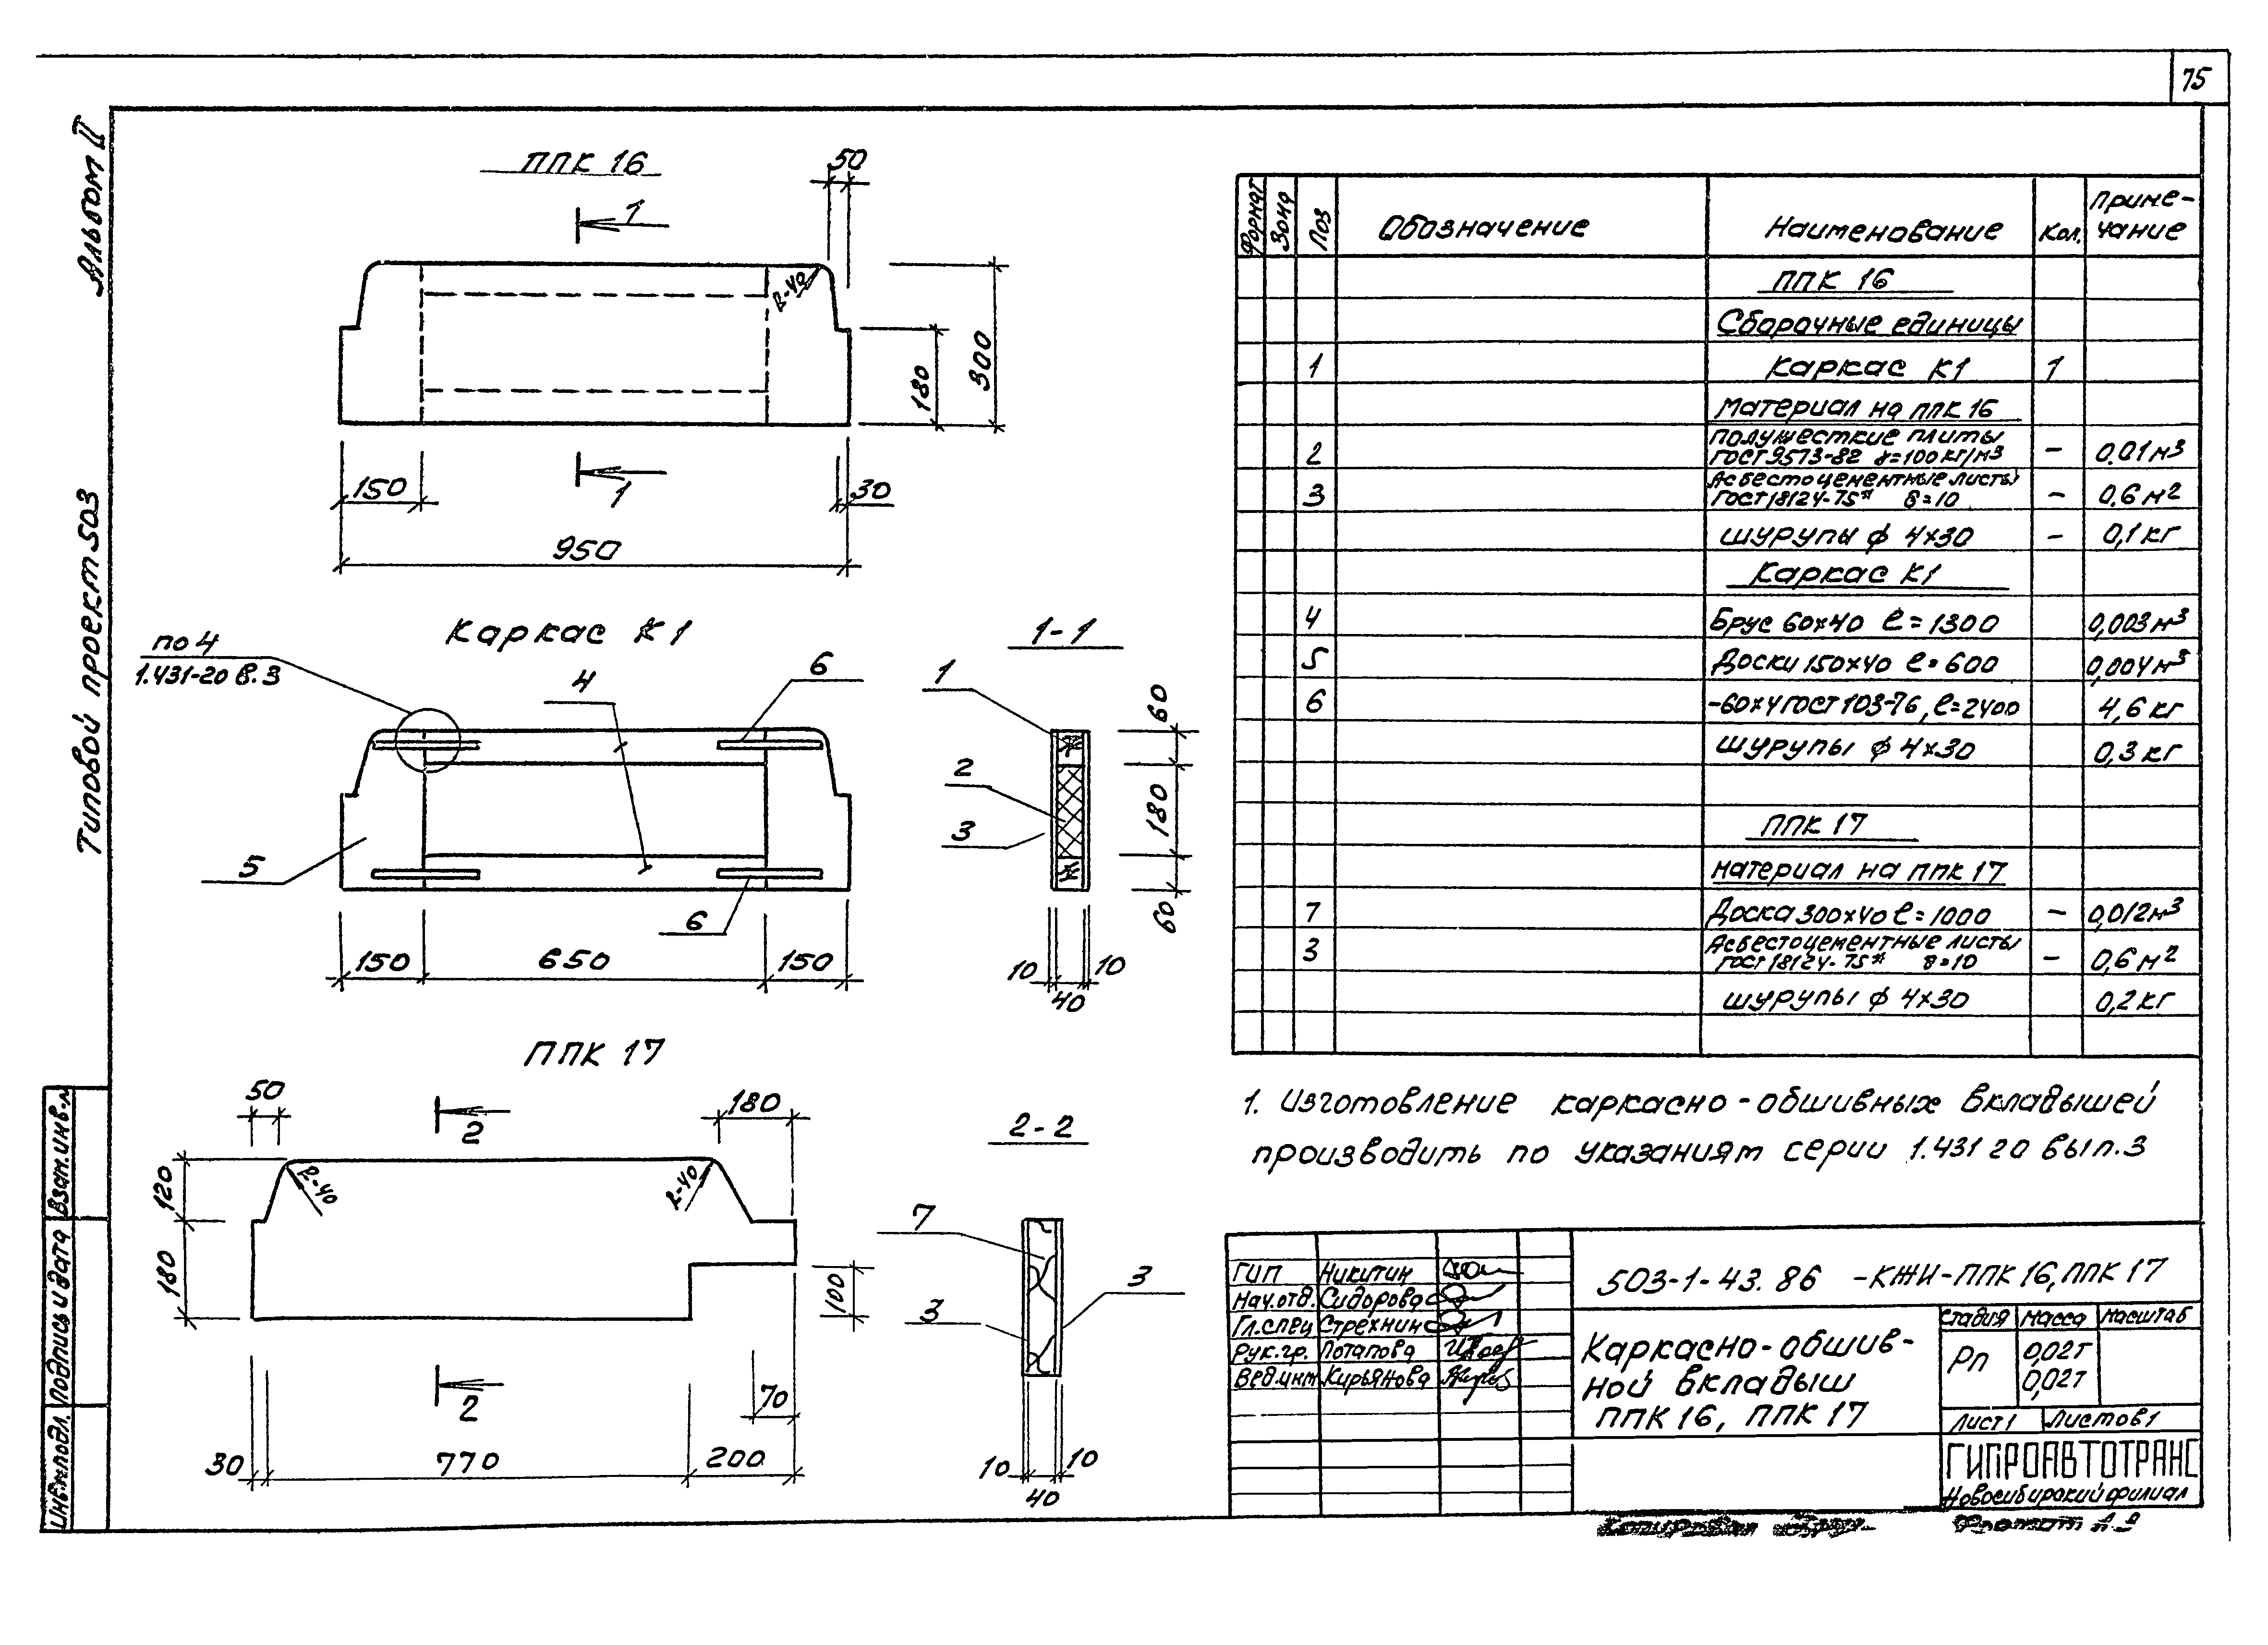 75
Альбом II
Типовой проект 503
ППК 16
50
1
R-40
300
180
150
1
30
950
Каркас К1
по 4
1.431-20 в.3
4
6
5
6
150
650
150
1-1
1
2
3
60
180
60
10
10
40
ППК 17
50
2
180
R-40
R-40
120
180
100
2
70
30
770
200
2-2
7
3
3
10
10
40
Формат
Зона
Поз
Обозначение
Наименование
Кол.
Приме-
чание
ППК 16
Сборочные единицы
1 Каркас К1 1
Материал на ППК 16
Полужесткие плиты
2 ГОСТ 9573-82 γ=100 кг/м3 – 0.01 м3
Асбестоцементные листы
3 ГОСТ 18124-75* δ=10 – 0.6 м2
Шурупы ф 4х30 – 0,1 кг
Каркас К1
4 Брус 60х40 ℓ=1300 0,003 м3
5 Доски 150х40 ℓ=600 0,004 м3
6 -60х4 ГОСТ 103-76, ℓ=2400 4,6 кг
Шурупы ф 4х30 0,3 кг
ППК 17
Материал на ППК 17
7 Доска 300х40 ℓ=1000 – 0,012 м3
Асбестоцементные листы
3 ГОСТ 18124-75* δ=10 – 0,6 м2
Шурупы ф 4х30 0,2 кг
1. Изготовление каркасно-обшивных вкладышей
производить по указаниям серии 1.431 20 вып.3
ГИП Никитин
Нач.отд. Сидорова
Гл.спец Стрехнин
Рук.гр. Потапова
Вед.инж Кирьянова
503-1-43.86 -КЖИ-ППК 16, ППК 17
Каркасно-обшив-
ной вкладыш
ППК 16, ППК 17
Стадия Масса Масштаб
РП 0,02т
0,02т
Лист 1 Листов 1
ГИПРОАВТОТРАНС
Новосибирский филиал
Взам.инв.№
Подпись и дата
Инв.№подл.
Копировал
Формат